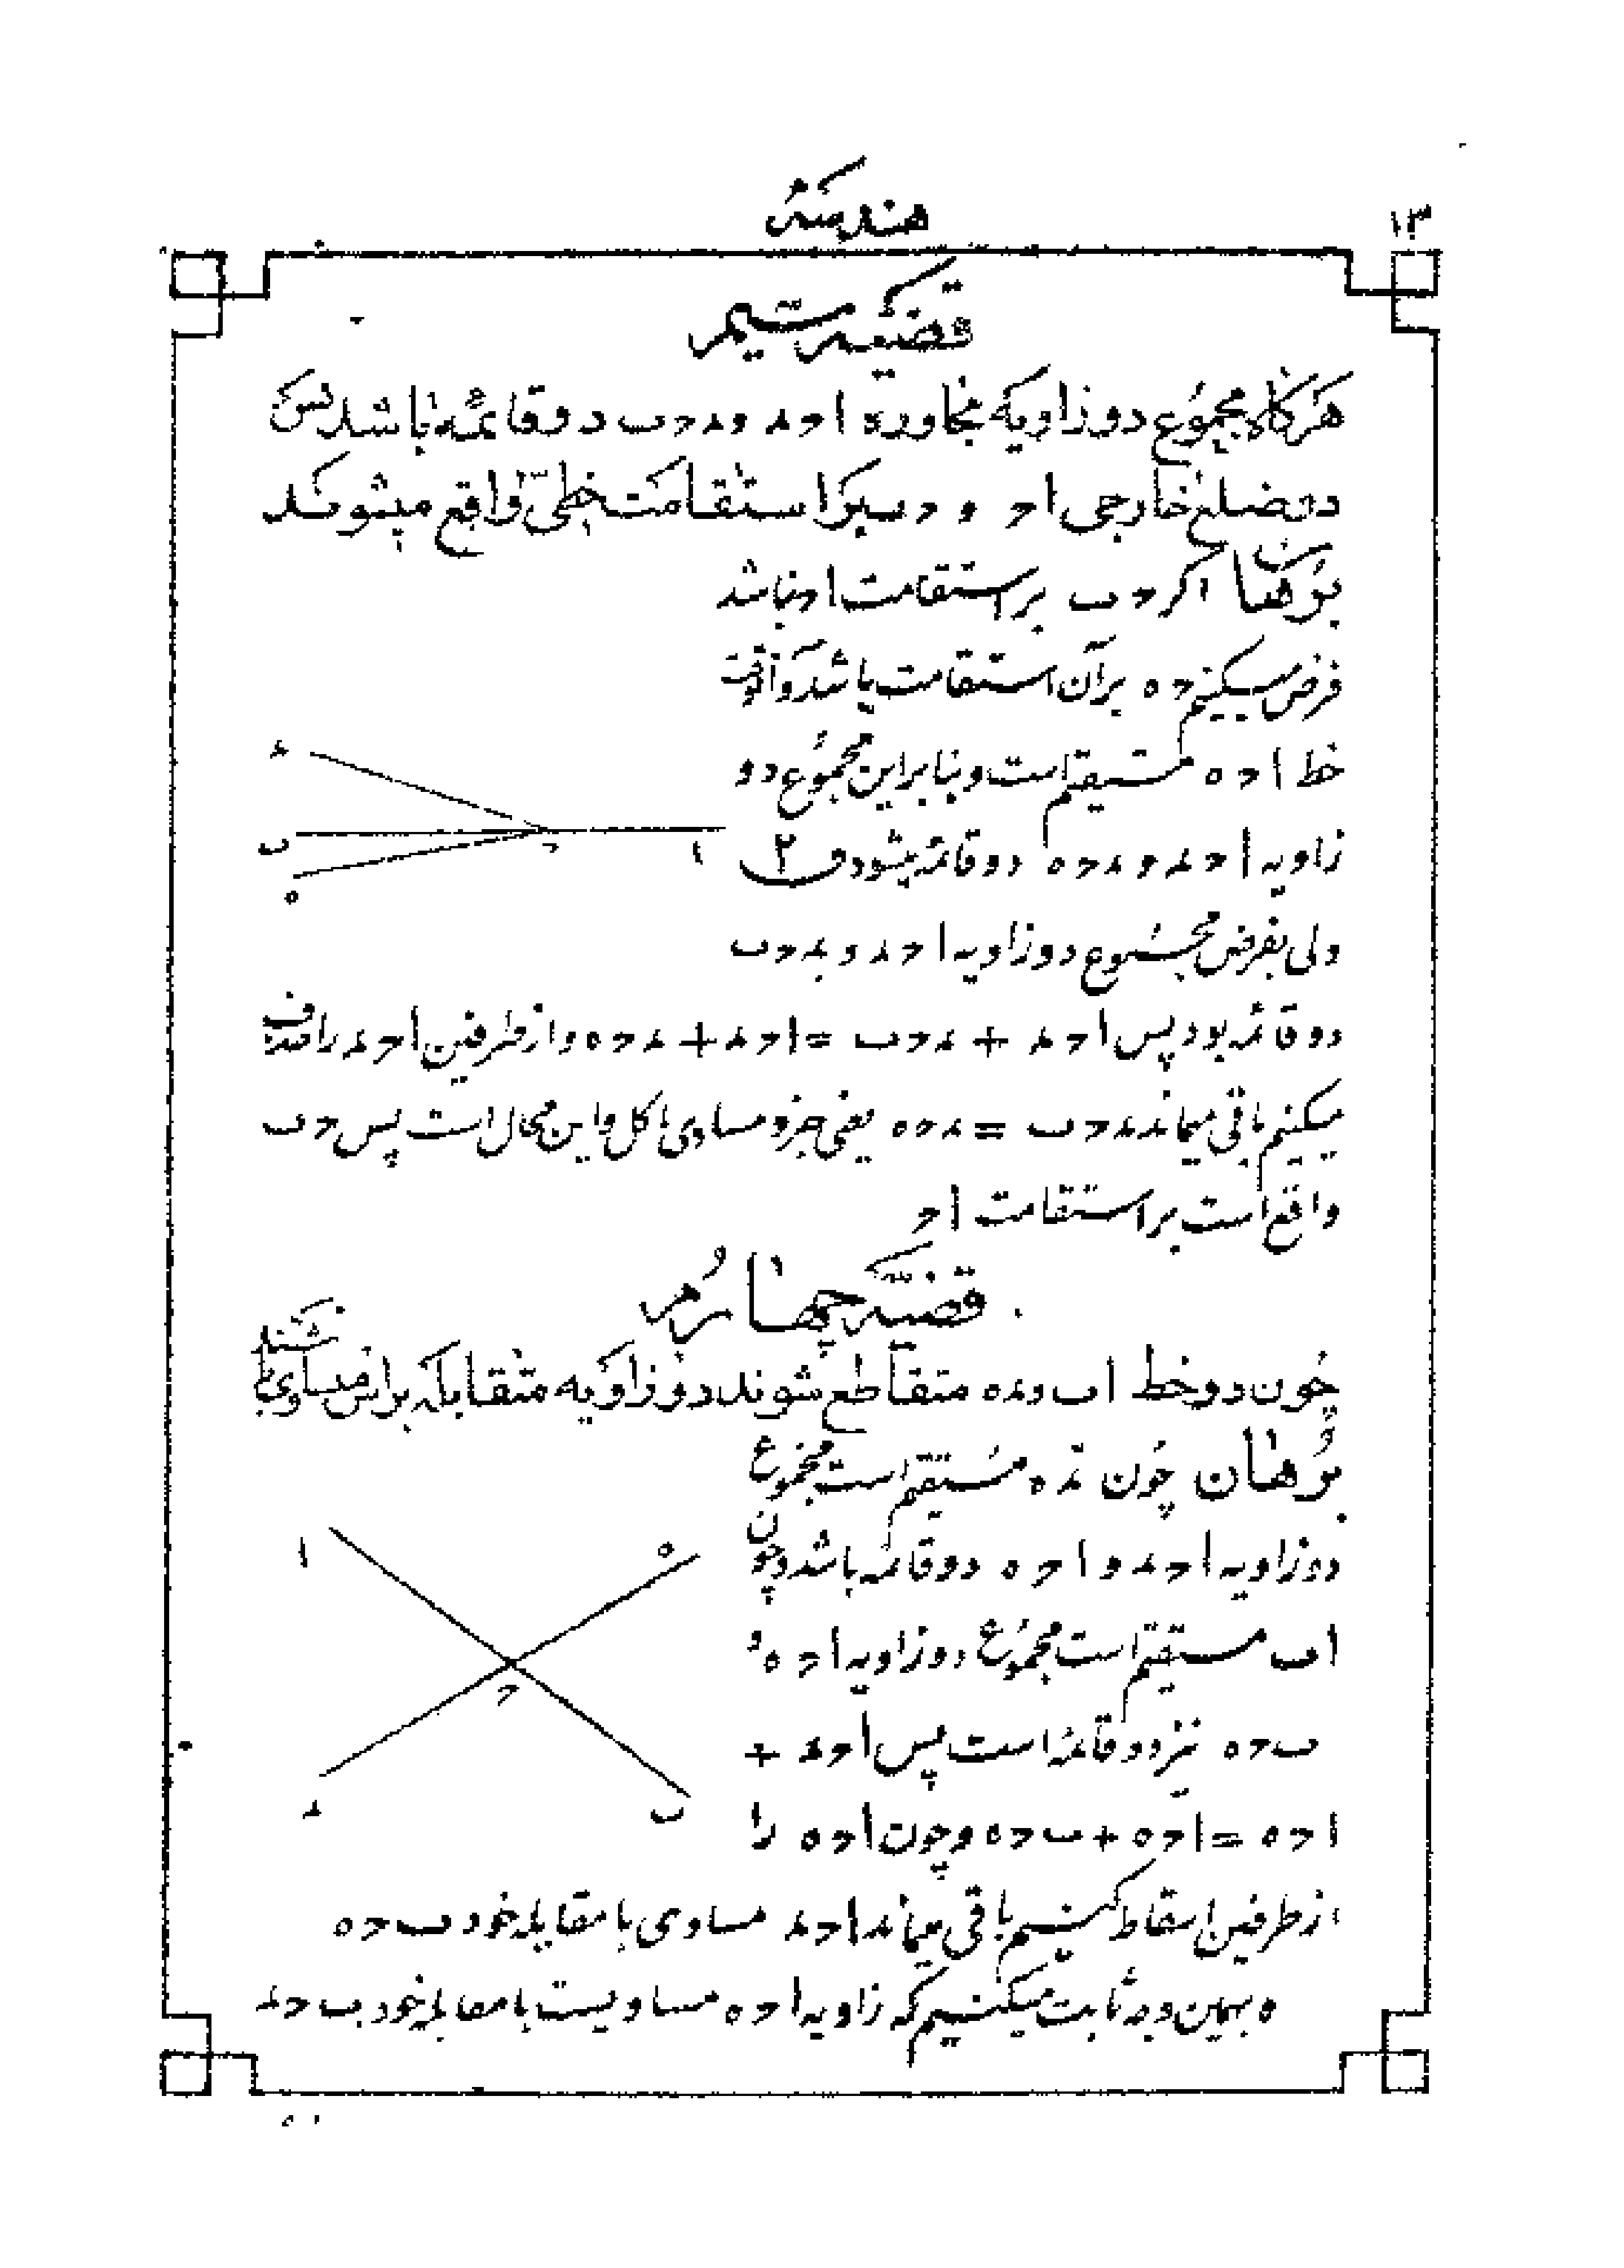 ۱۳
هندسه
قضیه سیم
هرگاه مجموع دو زاویه مجاوره ا ح د و د ح ب دو قائمه باشد پس
دو ضلع خارجی ا ح و ح ب بر استقامت خطی واقع میشوند
برهان اگر ح ب بر استقامت ا ح نباشد
فرض میکنیم ح ه بر آن استقامت باشد و آنوقت
خط ا ح ه مستقیم است و بنابراین مجموع دو
زاویه ا ح د و د ح ه دو قائمه میشود ق ۲
ولی بفرض مجموع دو زاویه ا ح د و د ح ب
دو قائمه بود پس ا ح د + د ح ب = ا ح د + د ح ه و از طرفین ا ح د را حذف
میکنیم باقی میماند د ح ب = د ح ه یعنی جزو مساوی با کل و این محال است پس ح ب
واقع است بر استقامت ا ح
د
ب
ه
ح
ا
قضیه چهارم
چون دو خط ا ب و د ه متقاطع شوند دو زاویه متقابله براس مساوی باشند
برهان چون د ه مستقیم است مجموع
دو زاویه ا ح د و ا ح ه دو قائمه باشد و چون
ا ب مستقیم است مجموع دو زاویه ا ح ه و
ب ح ه نیز دو قائمه است پس ا ح د +
ا ح ه = ا ح ه + ب ح ه و چون ا ح ه را
از طرفین اسقاط کنیم باقی میماند ا ح د مساوی با مقابله خود ب ح ه
ه بهمین وجه ثابت میکنیم که زاویه ا ح ه مساویست با مقابله خود ب ح د
ا
ه
ح
د
ب